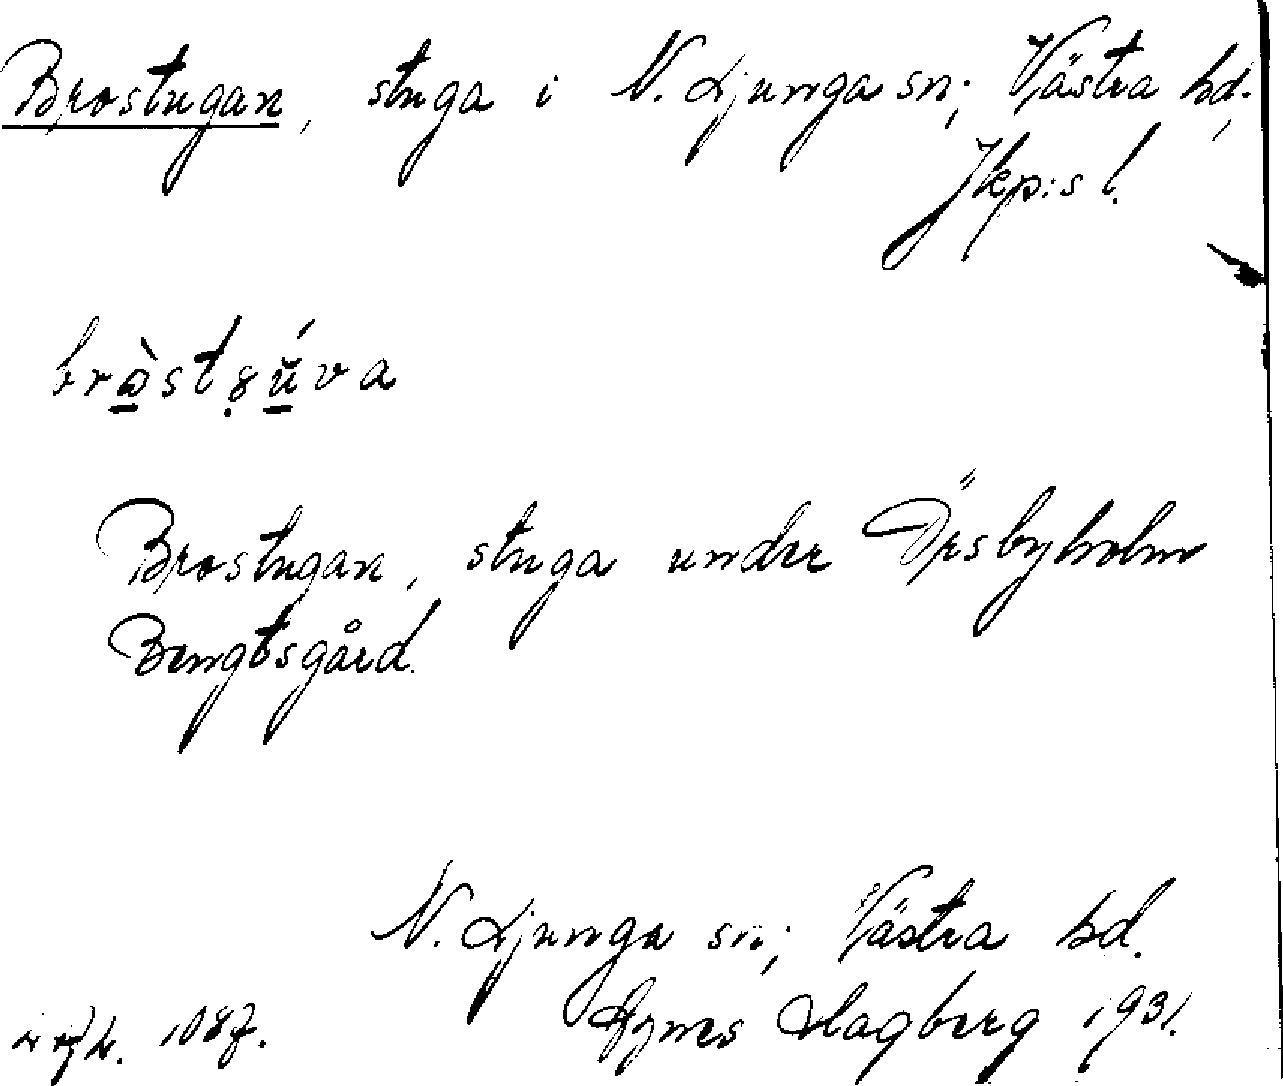 Brostugan, stuga i N. Ljunga sn; Västra hd,
Jkp:s l.
Brostugan, stuga under Öresbyholm
Bengtsgård.
N. Ljunga sn; Västra hd.
1087. Agnes Hagberg 1931.